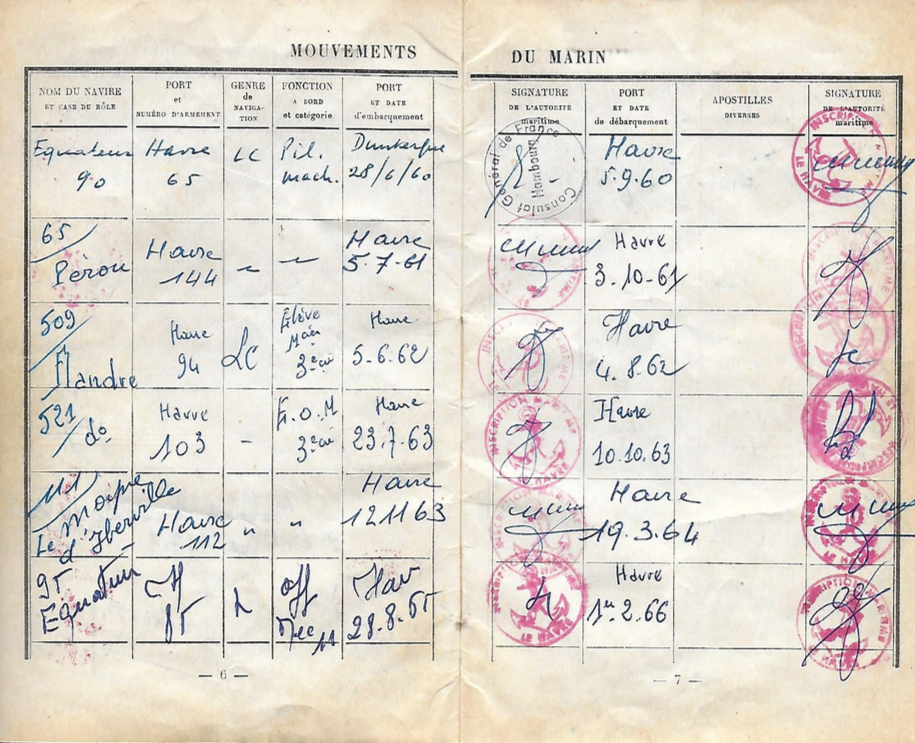 MOUVEMENTS DU MARIN
NOM DU NAVIRE
ET CASE DU RÔLE
PORT
et
NUMÉRO D'ARMEMENT
GENRE
de
NAVIGA-
TION
FONCTION
A BORD
et catégorie
PORT
ET DATE
d'embarquement
SIGNATURE
DE L'AUTORITÉ
maritime
PORT
ET DATE
de débarquement
APOSTILLES
DIVERSES
SIGNATURE
DE L'AUTORITÉ
maritime
Equateur
90
Havre
65
LC
Pil.
mach.
Dunkerque
28/6/60
Consulat Général de France
Hambourg
Havre
5.9.60
INSCRIPTION
LE HAVRE
65
Pérou
Havre
144
"
"
Havre
5.7.61
Havre
3.10.61
509
Flandre
Havre
94
LC
Élève
3e
Havre
5.6.62
Havre
4.8.62
521
do
Havre
103
"
E.O.M
3e
Havre
23.7.63
INSCRIPTION MARITIME
HAVRE
Havre
10.10.63
Le Moyne
d'Iberville
Havre
112
"
"
Havre
12 11 63
INSCRIPTION MARITIME
Havre
19.3.64
LE HAVRE
95
Equateur
H
85
off
Mec
Hav
28.8.65
INSCRIPTION MARITIME
LE HAVRE
Havre
1er.2.66
INSCRIPTION MARITIME
— 6 —
— 7 —